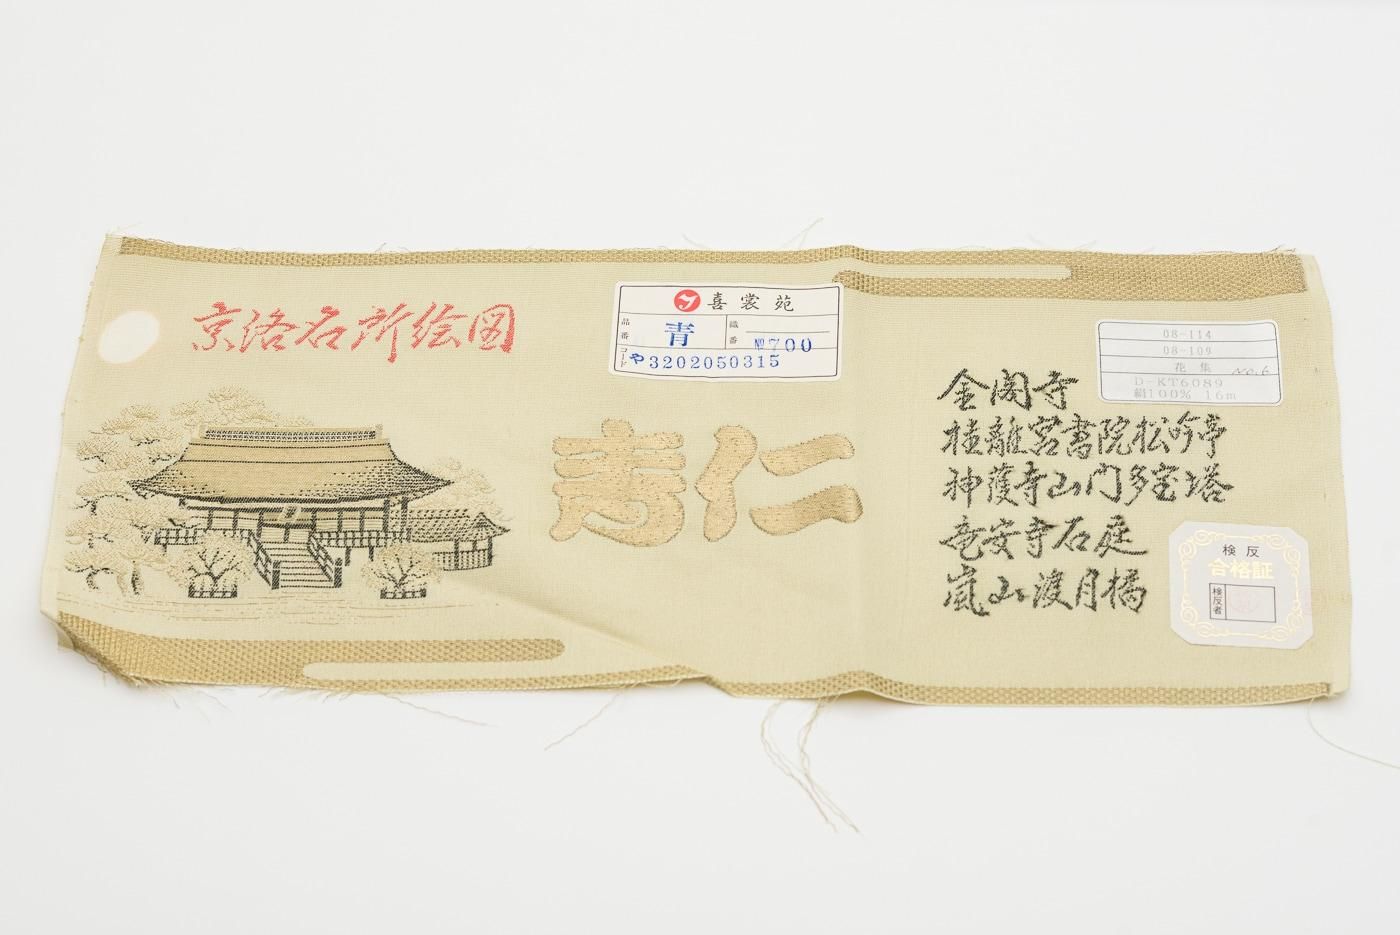 京洛名所絵図
喜裳苑
品番 青 織番 №700
コード や3202050315
寿仁
08-114
08-109
花集 No.6
D-KT6089
絹100% 16m
金閣寺
桂離宮書院松吟亭
神護寺山门多宝塔
竜安寺石庭
嵐山渡月橋
検反
合格証
検反者